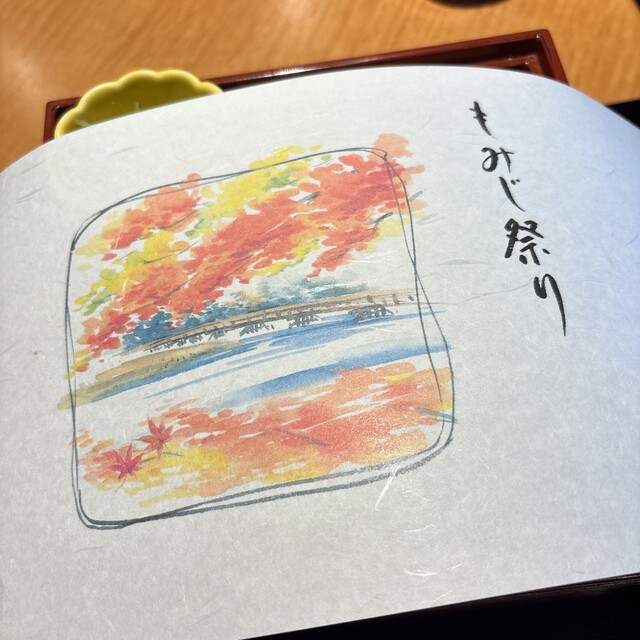 もみじ祭り